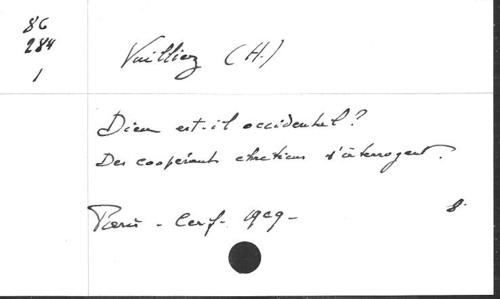 86
284
1
Vuilliez (H.)
Dieu est-il occidental?
Des coopérants chrétiens s'interrogent.
Paris - Cerf - 1969 -
8°